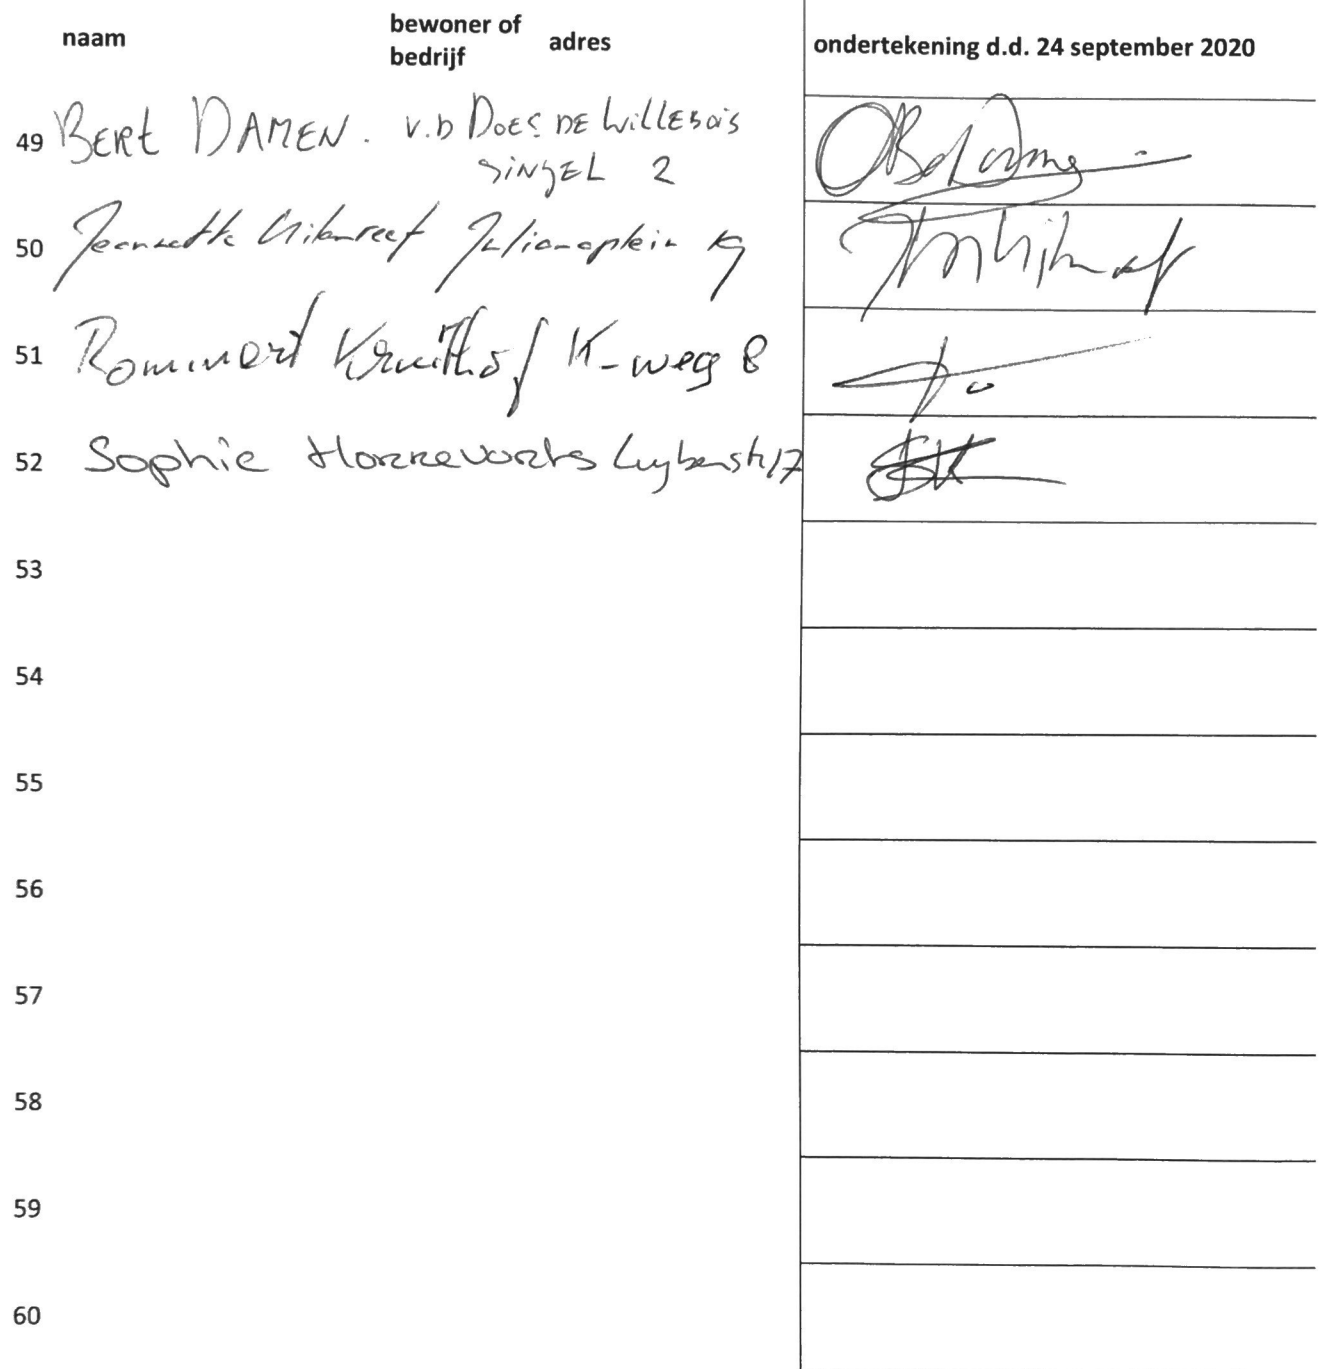 naam bewoner of bedrijf adres ondertekening d.d. 24 september 2020
49 BERt DAMEN. v.D DOES DE WILLEBOIS
SINGEL 2
50 Jeannette Julianaplein 19
51 Rommert Kruithof K-weg 8
52 Sophie Horrevorts Luybenstr 17
53
54
55
56
57
58
59
60